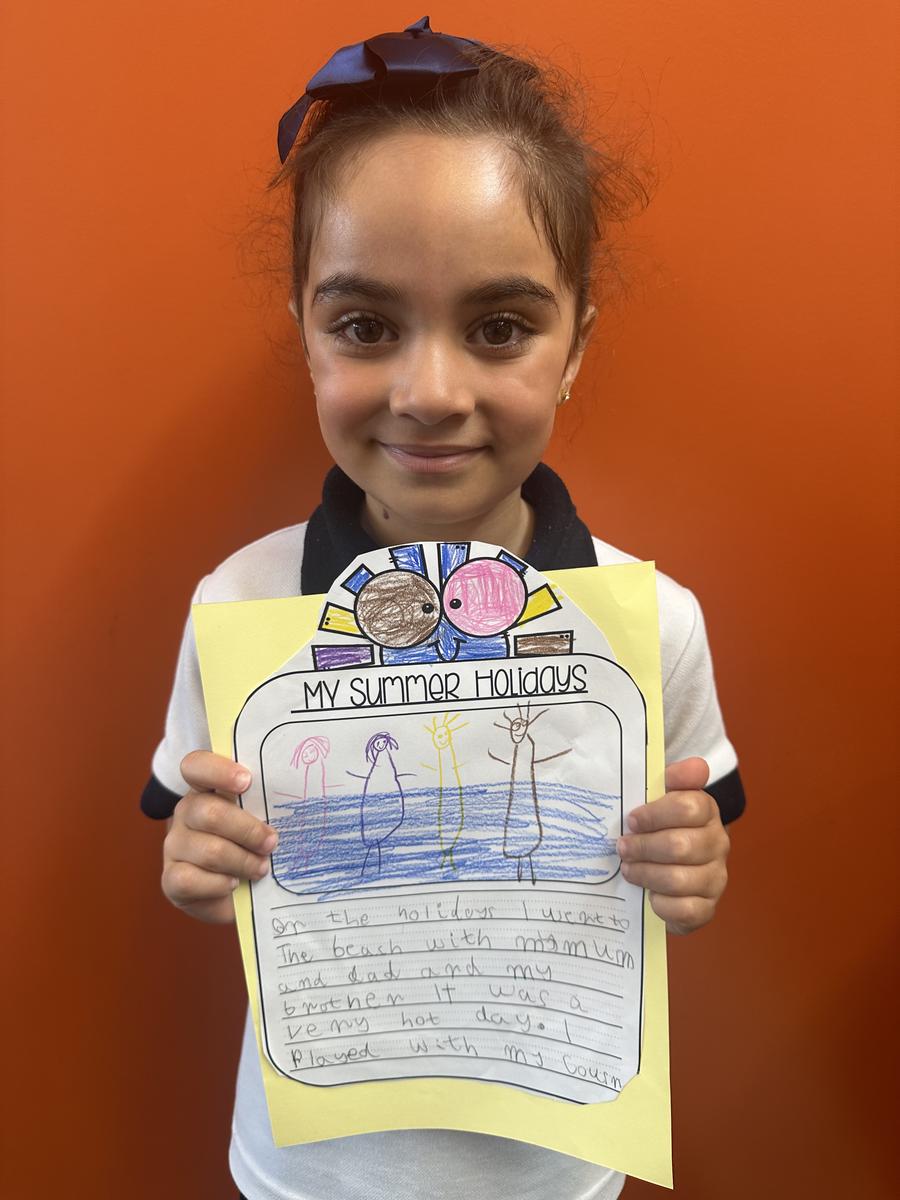 MY SUMMER HOLIdAYS
On the holidays I went to
The beach with my mum
and dad and my
brother It was a
very hot day. I
Played with my Cousin